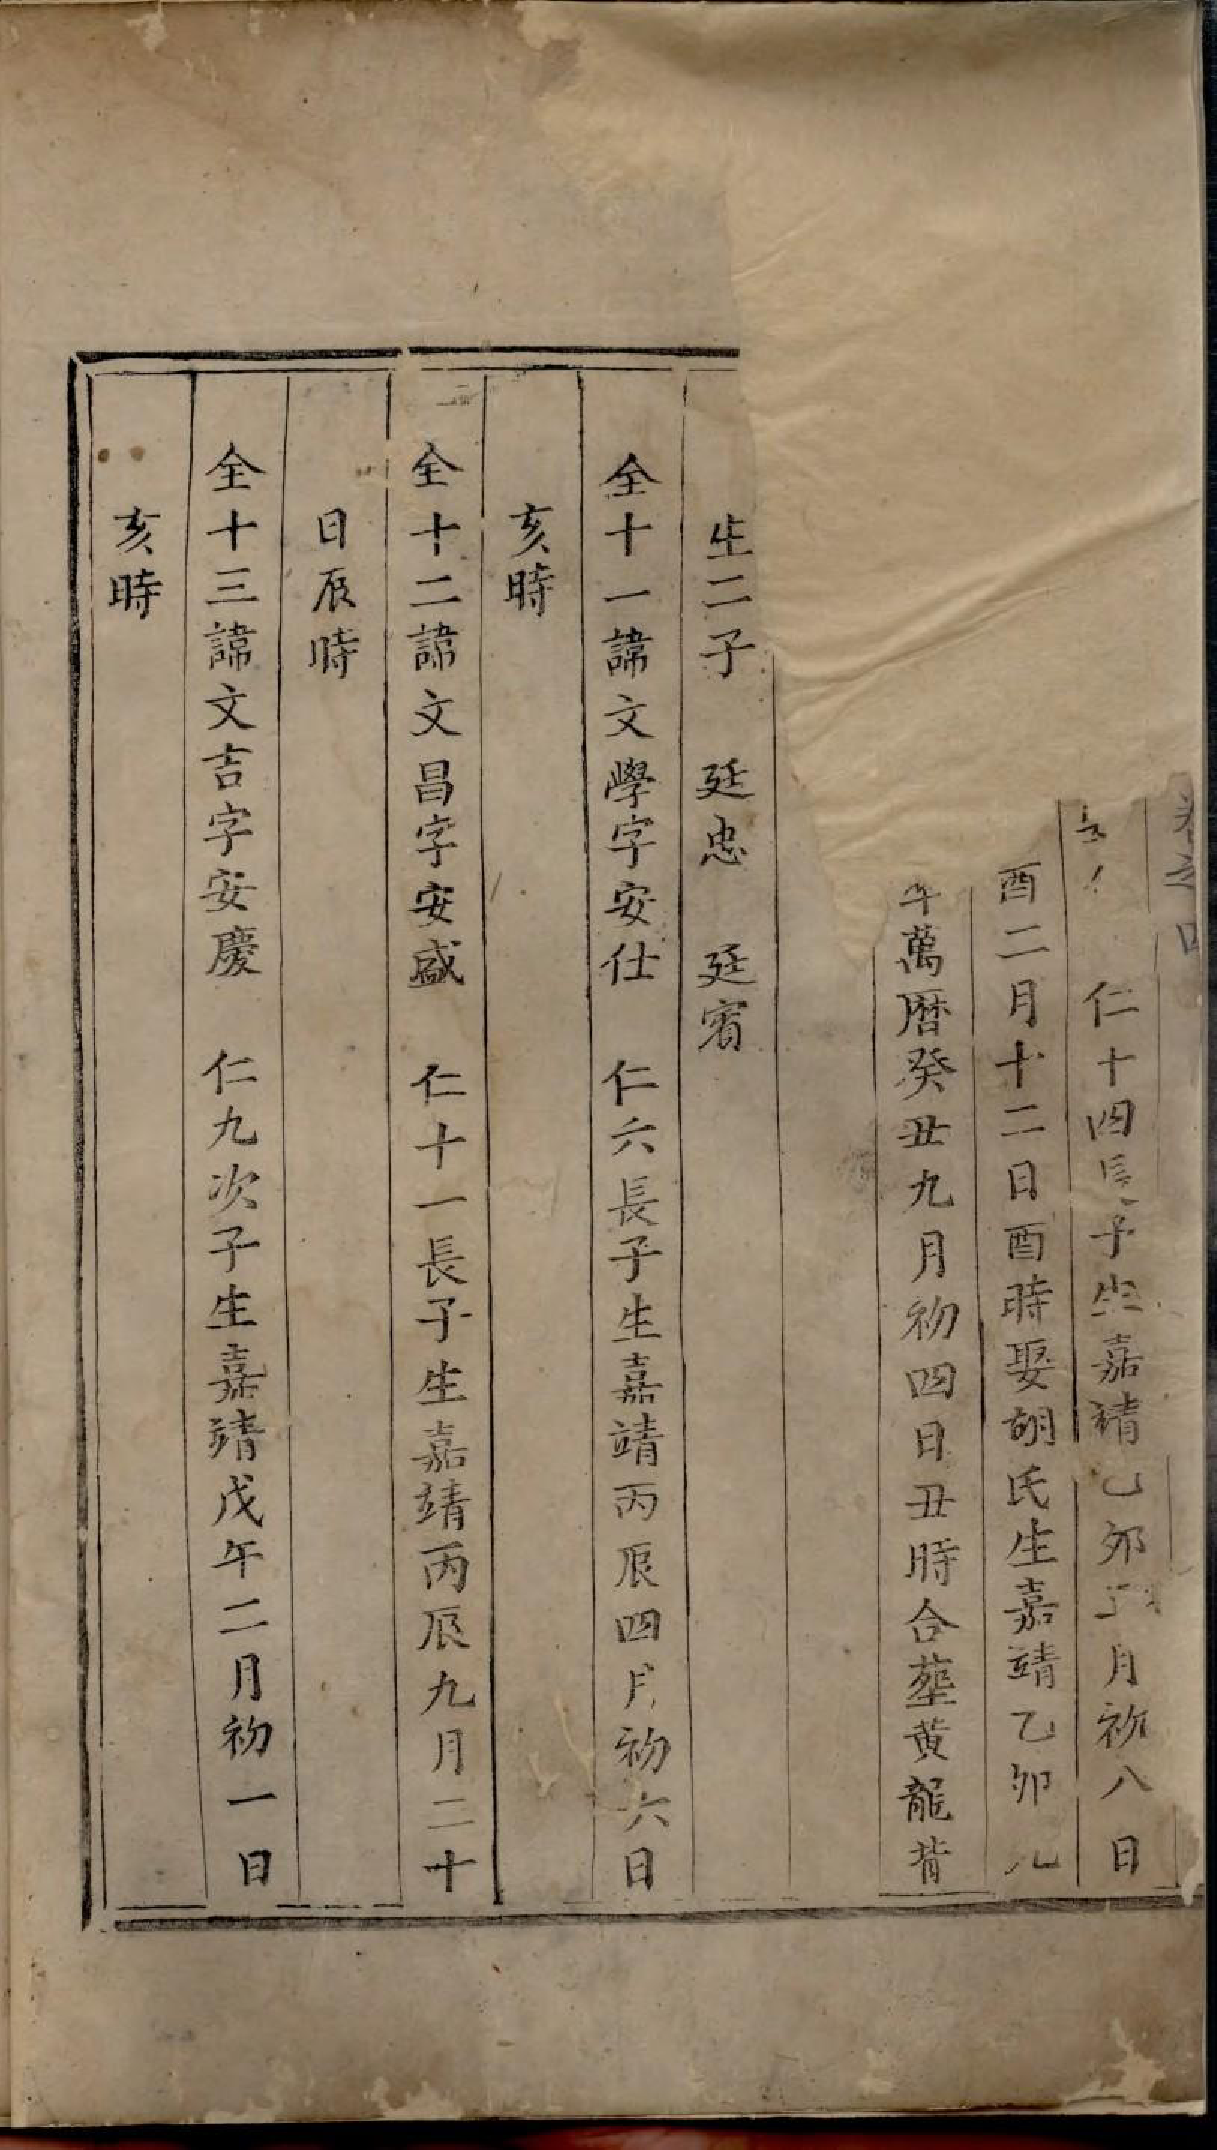 卷之四
仁十四長子生嘉靖乙卯月初八日
酉二月十二日酉時娶胡氏生嘉靖乙卯九
年萬曆癸丑九月初四日丑時合塟黄龍背
生二子 廷忠 廷賓
全十一諱文學字安仕 仁六長子生嘉靖丙辰四月初六日
亥時
全十二諱文昌字安盛 仁十一長子生嘉靖丙辰九月二十
日辰時
全十三諱文吉字安慶 仁九次子生嘉靖戊午二月初一日
亥時